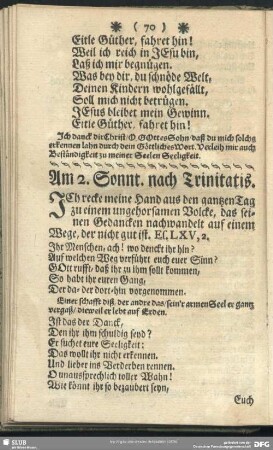 ( 70 )
Eitle Güther, fahret hin!
Weil ich reich in JEsu bin,
Laß ich mir begnügen.
Was bey dir, du schnöde Welt,
Deinen Kindern wohlgefällt,
Soll mich nicht betrügen.
JEsus bleibet mein Gewinn.
Eitle Güther, fahret hin!
Ich danck dir Christ, O GOttes Sohn, daß du mich solchs
erkennen lahn durch dein Göttliches Wort. Verleih mir auch
Beständigkeit zu meiner Seelen Seeligkeit.
Am 2. Sonnt. nach Trinitatis.
ICh recke meine Hand aus den gantzen Tag
zu einem ungehorsamen Volcke, das sei-
nen Gedancken nachwandelt auf einem
Wege, der nicht gut ist. Es. LXV, 2.
Ihr Menschen, ach! wo denckt ihr hin?
Auf welchen Weg verführt euch euer Sinn?
GOtt rufft, daß ihr zu ihm sollt kommen,
So habt ihr euren Gang,
Der da, der dort-hin vorgenommen.
Einer schafft diß, der andre das, sein'r armen Seel er gantz
vergaß, dieweil er lebt auf Erden.
Ist das der Danck,
Den ihr ihm schuldig seyd?
Er suchet eure Seeligkeit;
Das wollt ihr nicht erkennen,
Und lieber ins Verderben rennen.
O unaussprechlich toller Wahn!
Wie könnt ihr so bezaubert seyn,
Euch
SLUB